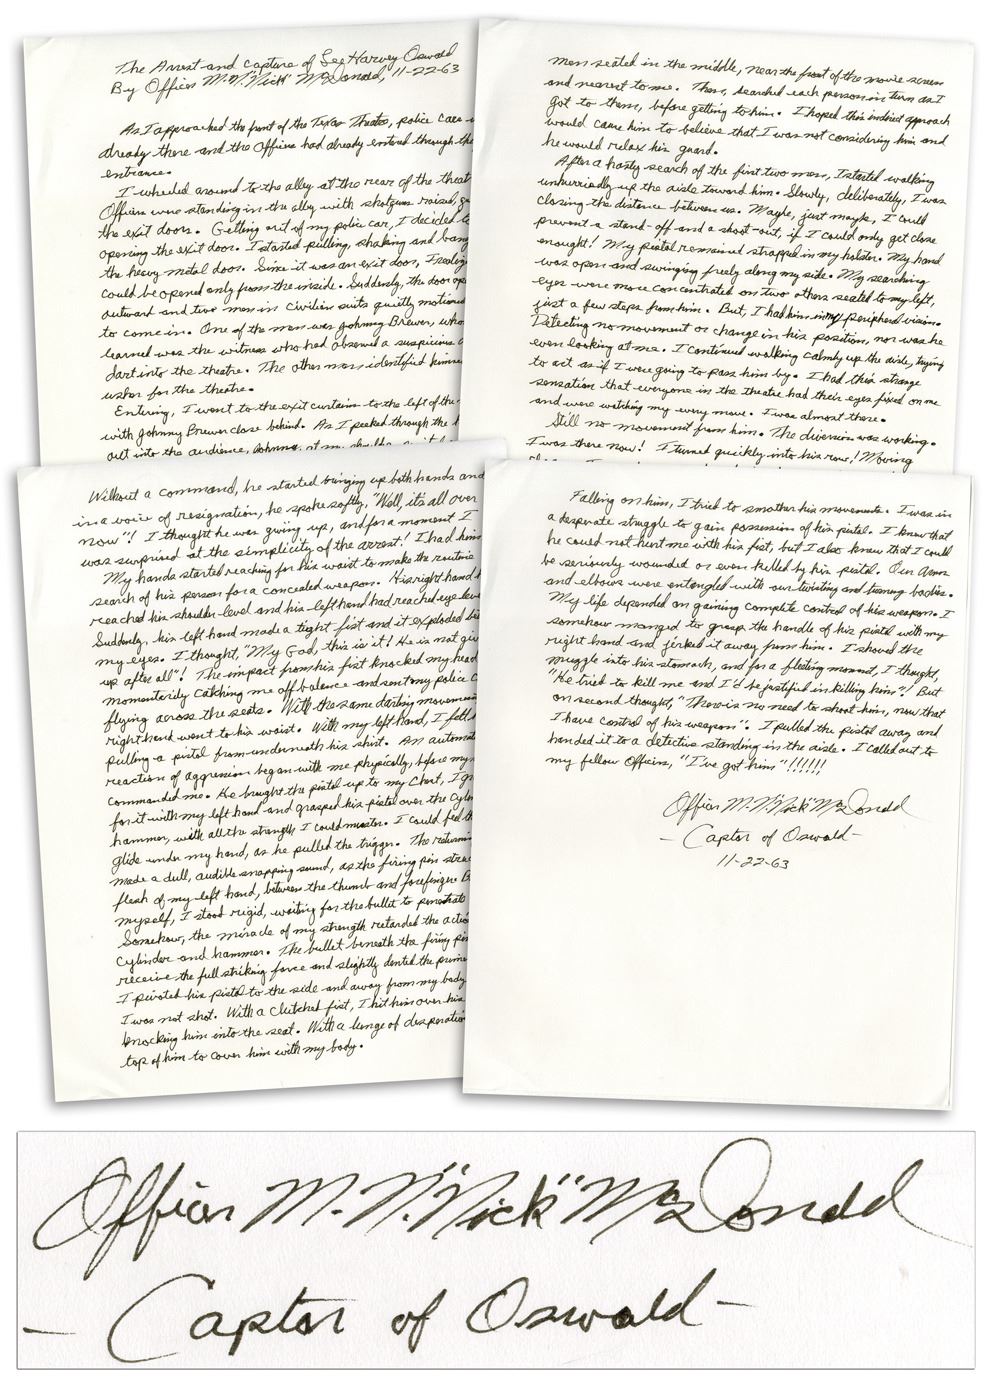 The Arrest and capture of Lee Harvey Oswald
By Officer M.N. "Nick" McDonald, 11-22-63
As I approached the front of the Texas Theatre, police cars
already there and the Officers had already entered through the
entrance.
I wheeled around to the alley at the rear of the
Officers were standing in the alley with shotguns raised,
the exit doors. Getting out of my police car, I decided
opening the exit door. I started pulling, shaking and
the heavy metal door. Since it was an exit door,
could be opened only from the inside. Suddenly, the door
outward and two men in civilian suits quietly motioned
to come in. One of the men was Johnny Brewer, who
learned was the witness who had observed a suspicious
dart into the theatre. The other man identified
usher for the theatre.
Entering, I went to the exit curtains to the left of the
with Johnny Brewer close behind. As I peaked through the
out into the audience, Johnny, at my
men seated in the middle, near the front of the movie screen
and nearest to me. Then, searched each person in turn as I
got to them, before getting to him. I hoped this indirect approach
would cause him to believe that I was not considering him and
he would relax his guard.
After a hasty search of the first two men, I started walking
unhurriedly up the aisle toward him. Slowly, deliberately, I was
closing the distance between us. Maybe, just maybe, I could
prevent a stand-off and a shoot-out, if I could only get close
enought! My pistol remained strapped in my holster. My hand
was open and swinging freely along my side. My searching
eyes were more concentrated on two others seated to my left,
just a few steps from him. But, I had him in my peripheral vision.
Detecting no movement or change in his position, nor was he
even looking at me. I continued walking calmly up the aisle, trying
to act as if I were going to pass him by. I had this strange
sensation that everyone in the theatre had their eyes fixed on me
and were watching my every move. I was almost there.
Still no movement from him. The diversion was working.
I was there now! I turned quickly into his row! Moving
Without a command, he started bringing up both hands and
in a voice of resignation, he spoke softly, "Well, it's all over
now"! I thought he was giving up, and for a moment I
was surprised at the simplicity of the arrest! I had him
My hands started reaching for his waist to make the routine
search of his person for a concealed weapon. His right hand
reached his shoulder level and his left hand had reached eye
Suddenly, his left hand made a tight fist and it exploded
my eyes. I thought, "My God, this is it! He is not
up after all"! The impact from his fist knocked my head
momentarily catching me off balance and sent my police
flying across the seats. With the same darting movement
right hand went to his waist. With my left hand, I felt
pulling a pistol from underneath his shirt. An
reaction of aggression began with me physically, before my
commanded me. He brought the pistol up to my chest, I
for it with my left hand and grasped his pistol over the
hammer, with all the strength I could muster. I could feel
glide under my hand, as he pulled the trigger. The
made a dull, audible snapping sound, as the firing pin
flesh of my left hand, between the thumb and forefinger
myself, I stood rigid, waiting for the bullet to penetrate
Somehow, the miracle of my strength retarded the
cylinder and hammer. The bullet beneath the firing
receive the full striking force and slightly dented the
I pivoted his pistol to the side and away from my body
I was not shot. With a clutched fist, I hit him over his
knocking him into the seat. With a lunge of desperation
top of him to cover him with my body.
Falling on him, I tried to smother his movements. I was in
a desperate struggle to gain possession of his pistol. I knew that
he could not hurt me with his fist, but I also knew that I could
be seriously wounded or even killed by his pistol. Our Arms
and elbows were entangled with our twisting and turning bodies.
My life depended on gaining complete control of his weapon. I
somehow manged to grasp the handle of his pistol with my
right hand and jerked it away from him. I shoved the
muzzle into his stomach, and for a fleeting moment, I thought,
"He tried to kill me and I'd be justified in killing him"! But
on second thought, "There is no need to shoot him, now that
I have control of his weapon". I pulled the pistol away and
handed it to a detective standing in the aisle. I called out to
my fellow Officers, "I've got him"!!!!!!
Officer M.N. "Nick" McDonald
- Captor of Oswald -
11-22-63
Officer M.N. "Nick" McDonald
- Captor of Oswald -